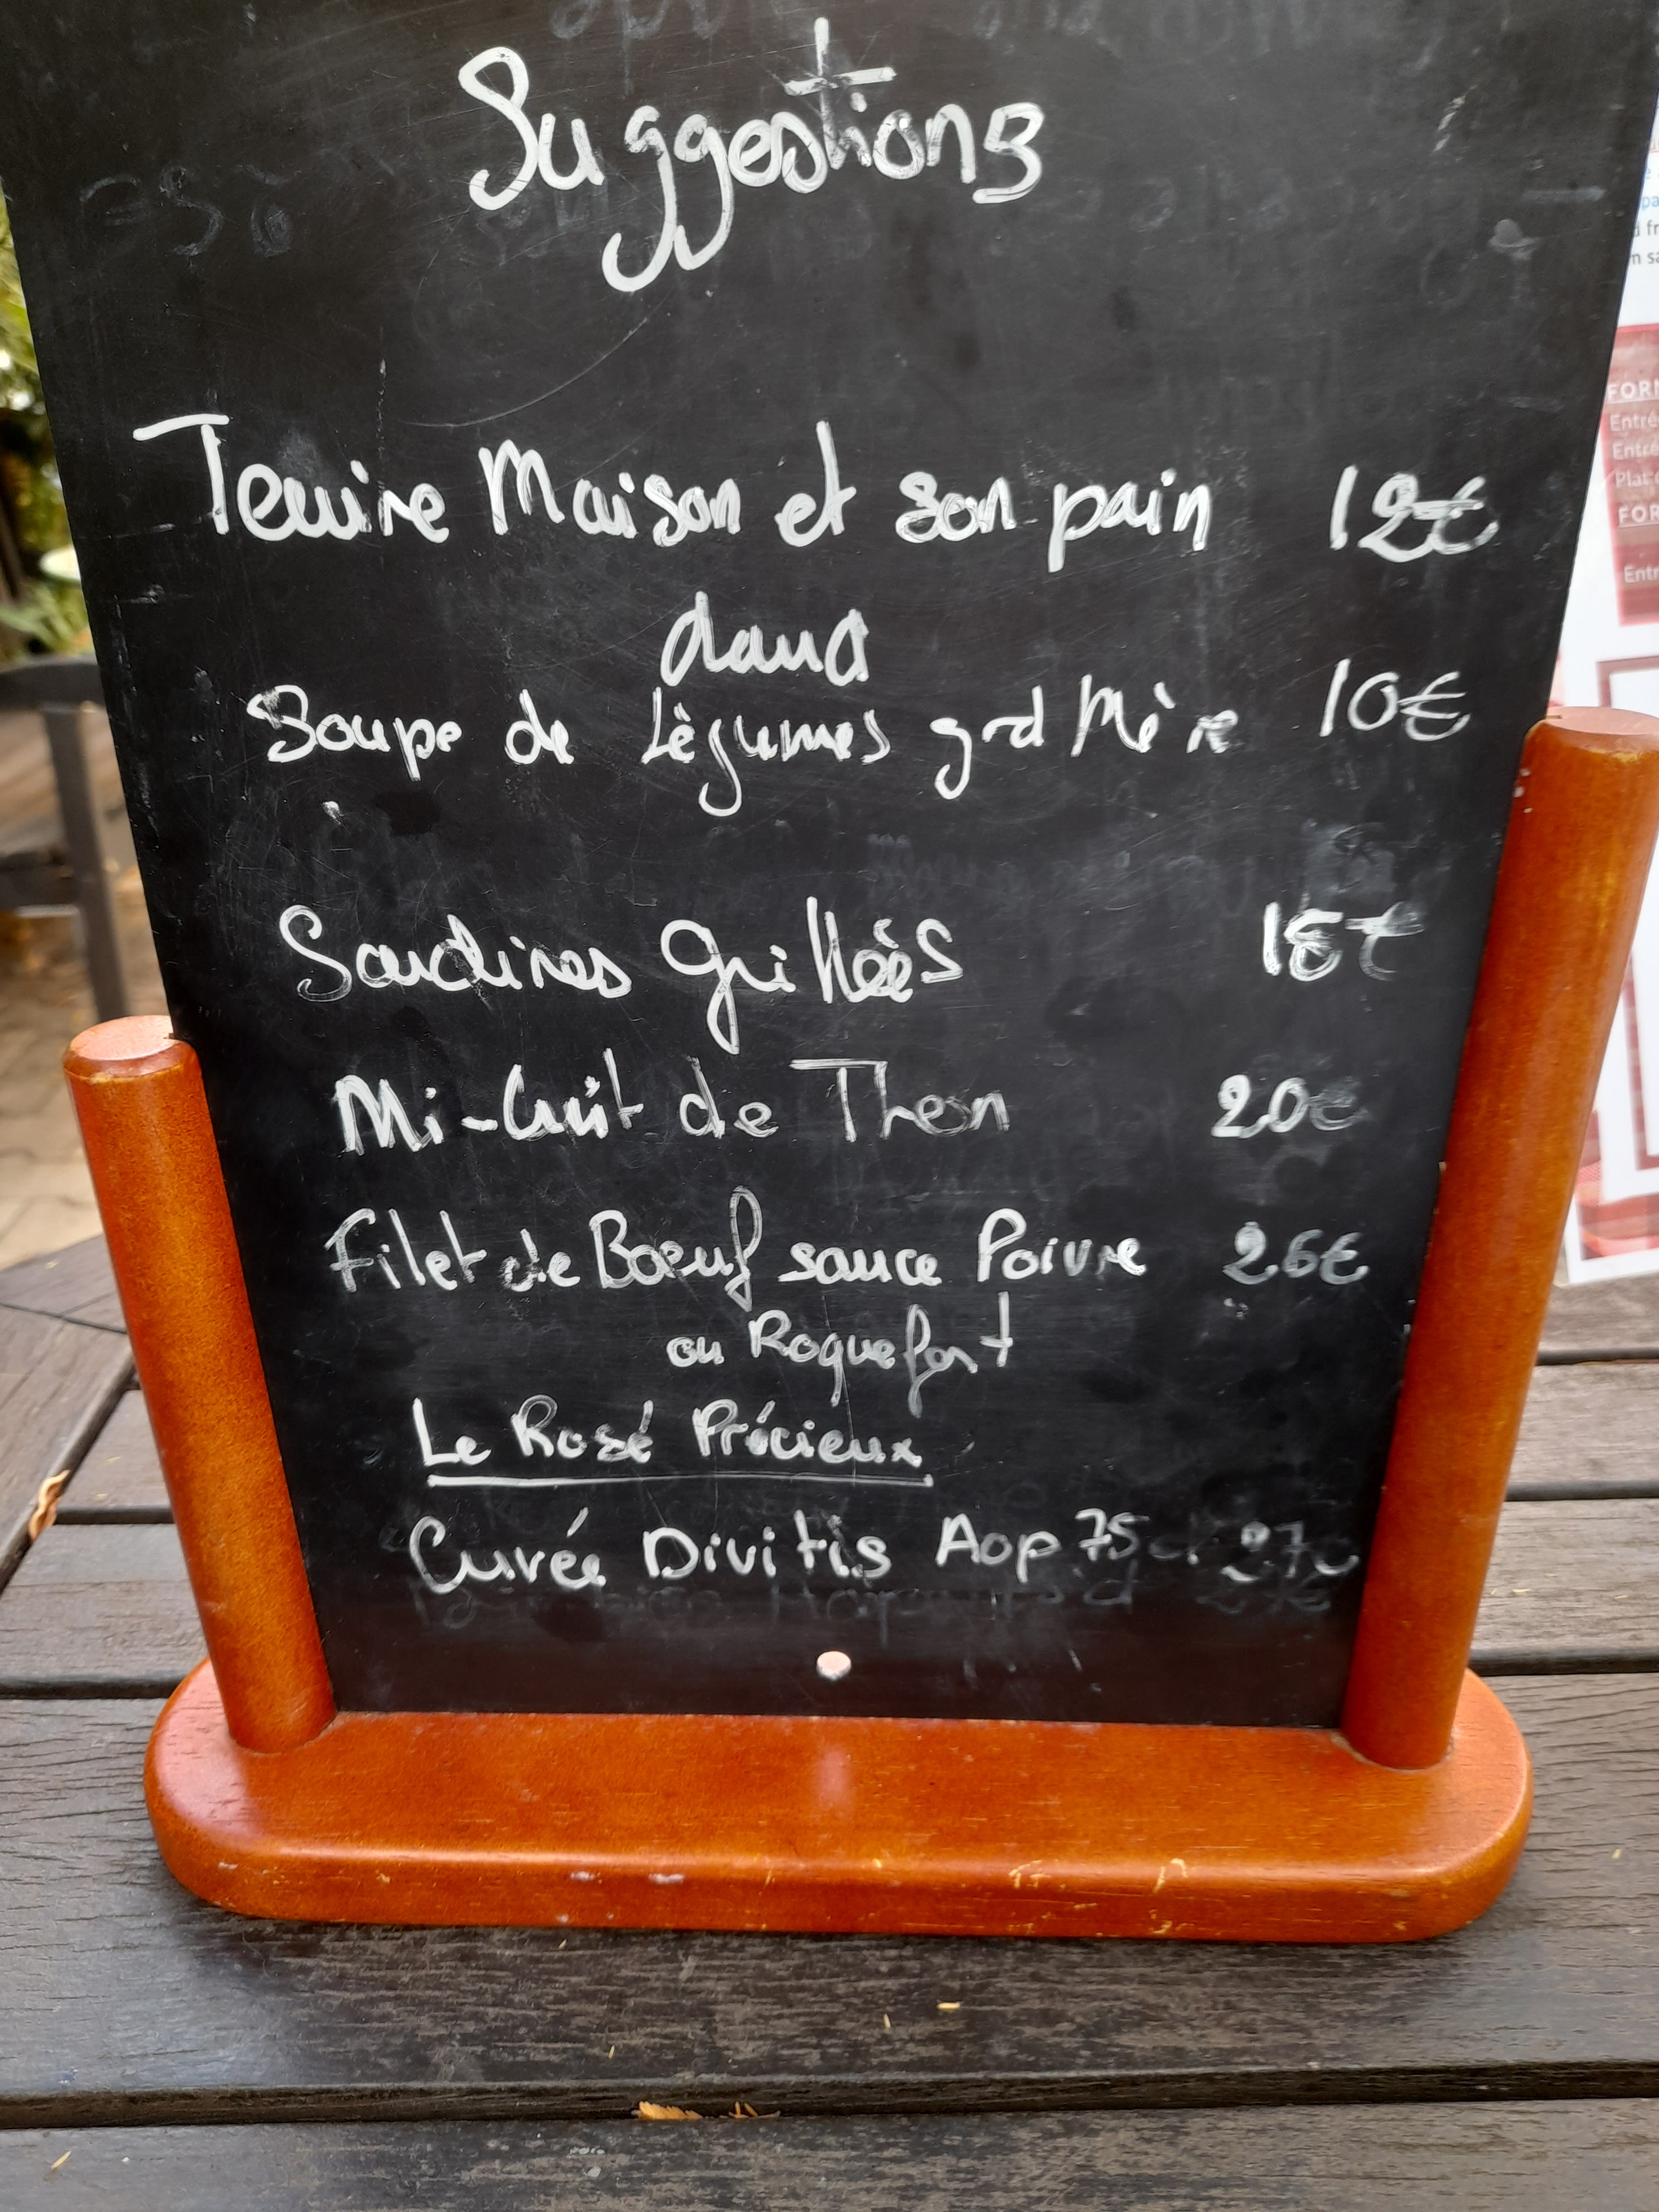 Suggestions
Terrine Maison et son pain 12€
chaud
Soupe de Légumes grd Mère 10€
Sardines Grillées 18€
Mi-Cuit de Thon 20€
Filet de Boeuf sauce Poivre 26€
ou Roquefort
Le Rosé Précieux
Cuvée Divitis Aop 75cl 27€
FOR
Entré
Entré
Plat
FOR
Entr